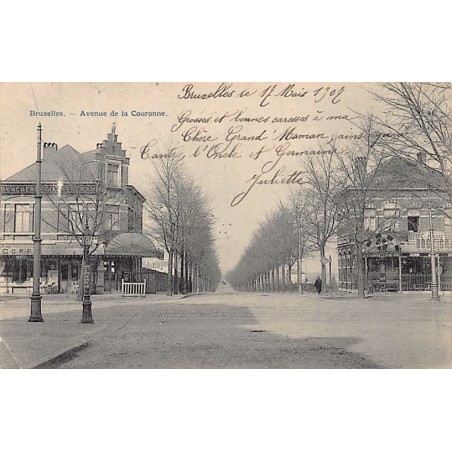 Bruxelles. - Avenue de la Couronne.
Bruxelles le 17 Mars 1907
Grosses et bonnes caresses à ma
Chère Grand'Maman, ainsi que
Tante, l'Oncle et Germaine
Juliette